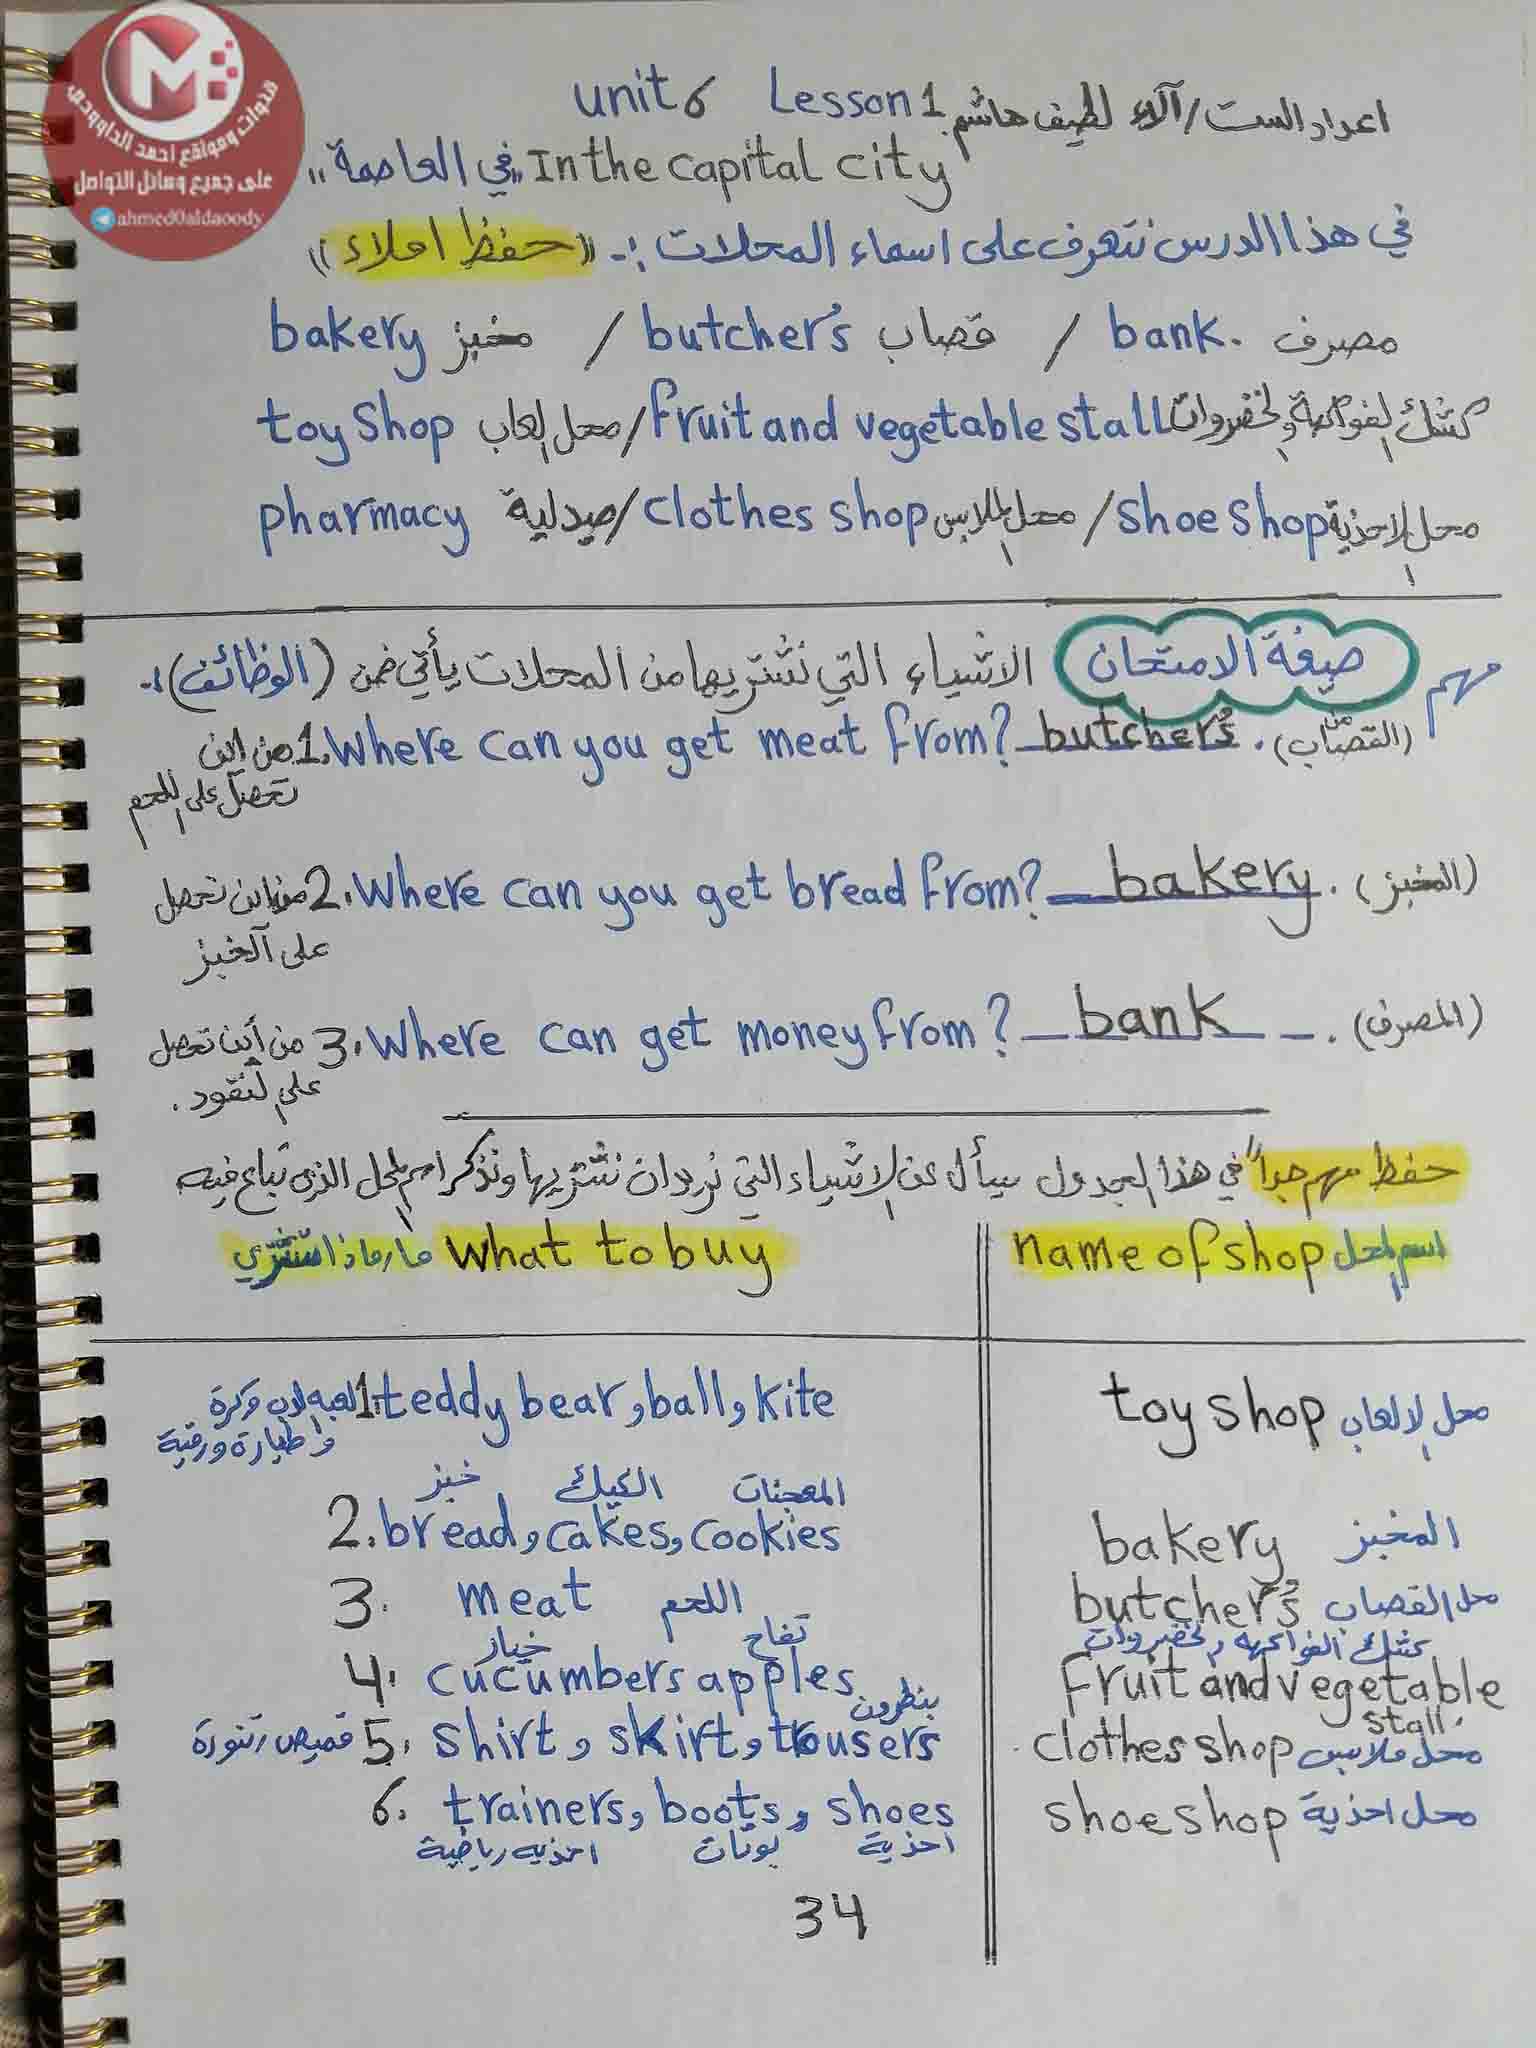 قنوات ومواقع احمد الداوودي
على جميع وسائل التواصل
ahmed0aldaoody
unit 6 Lesson 1 اعداد الست/آلاء لطيف هاشم
In the capital city "في العاصمة"
في هذا الدرس نتعرف على اسماء المحلات :- ((حفظ املاء))
bakery مخبز / butcher's قصاب / bank. مصرف
toy Shop محل العاب / fruit and vegetable stall كشك الفواكهة والخضروات
pharmacy صيدلية / clothes shop محل الملابس / shoe shop محل الاحذية
مهم صيغة الامتحان الاشياء التي نشتريها من المحلات يأتي ضمن (الوظائف):-
1. Where can you get meat from? butcher's. (من القصاب) من اين
تحصل على اللحم
2. Where can you get bread from? bakery. (المخبز) من اين تحصل
على الخبز
3. Where can get money from? bank. (المصرف) من أين تحصل
على النقود.
حفظ مهم جداً في هذا الجدول يسأل عن الاشياء التي نريد ان نشتريها ونذكر اسم المحل الذي تباع فيه
What to buy ما/ماذا تشتري name of shop اسم المحل
1. teddy bear, ball, kite لعبة الدب وكرة toy shop محل الالعاب
وطيارة ورقية
خبز الكيك المعجنات
2. bread, cakes, cookies bakery المخبز
3. meat اللحم butcher's محل القصاب
خيار تفاح كشك الفواكهه والخضروات
4. cucumbers apples fruit and vegetable
بنطرون stall.
5. shirt, skirt, trousers قميص, تنورة clothes shop محل ملابس
6. trainers, boots, shoes shoe shop محل احذية
احذيه رياضية بوتات احذية
34